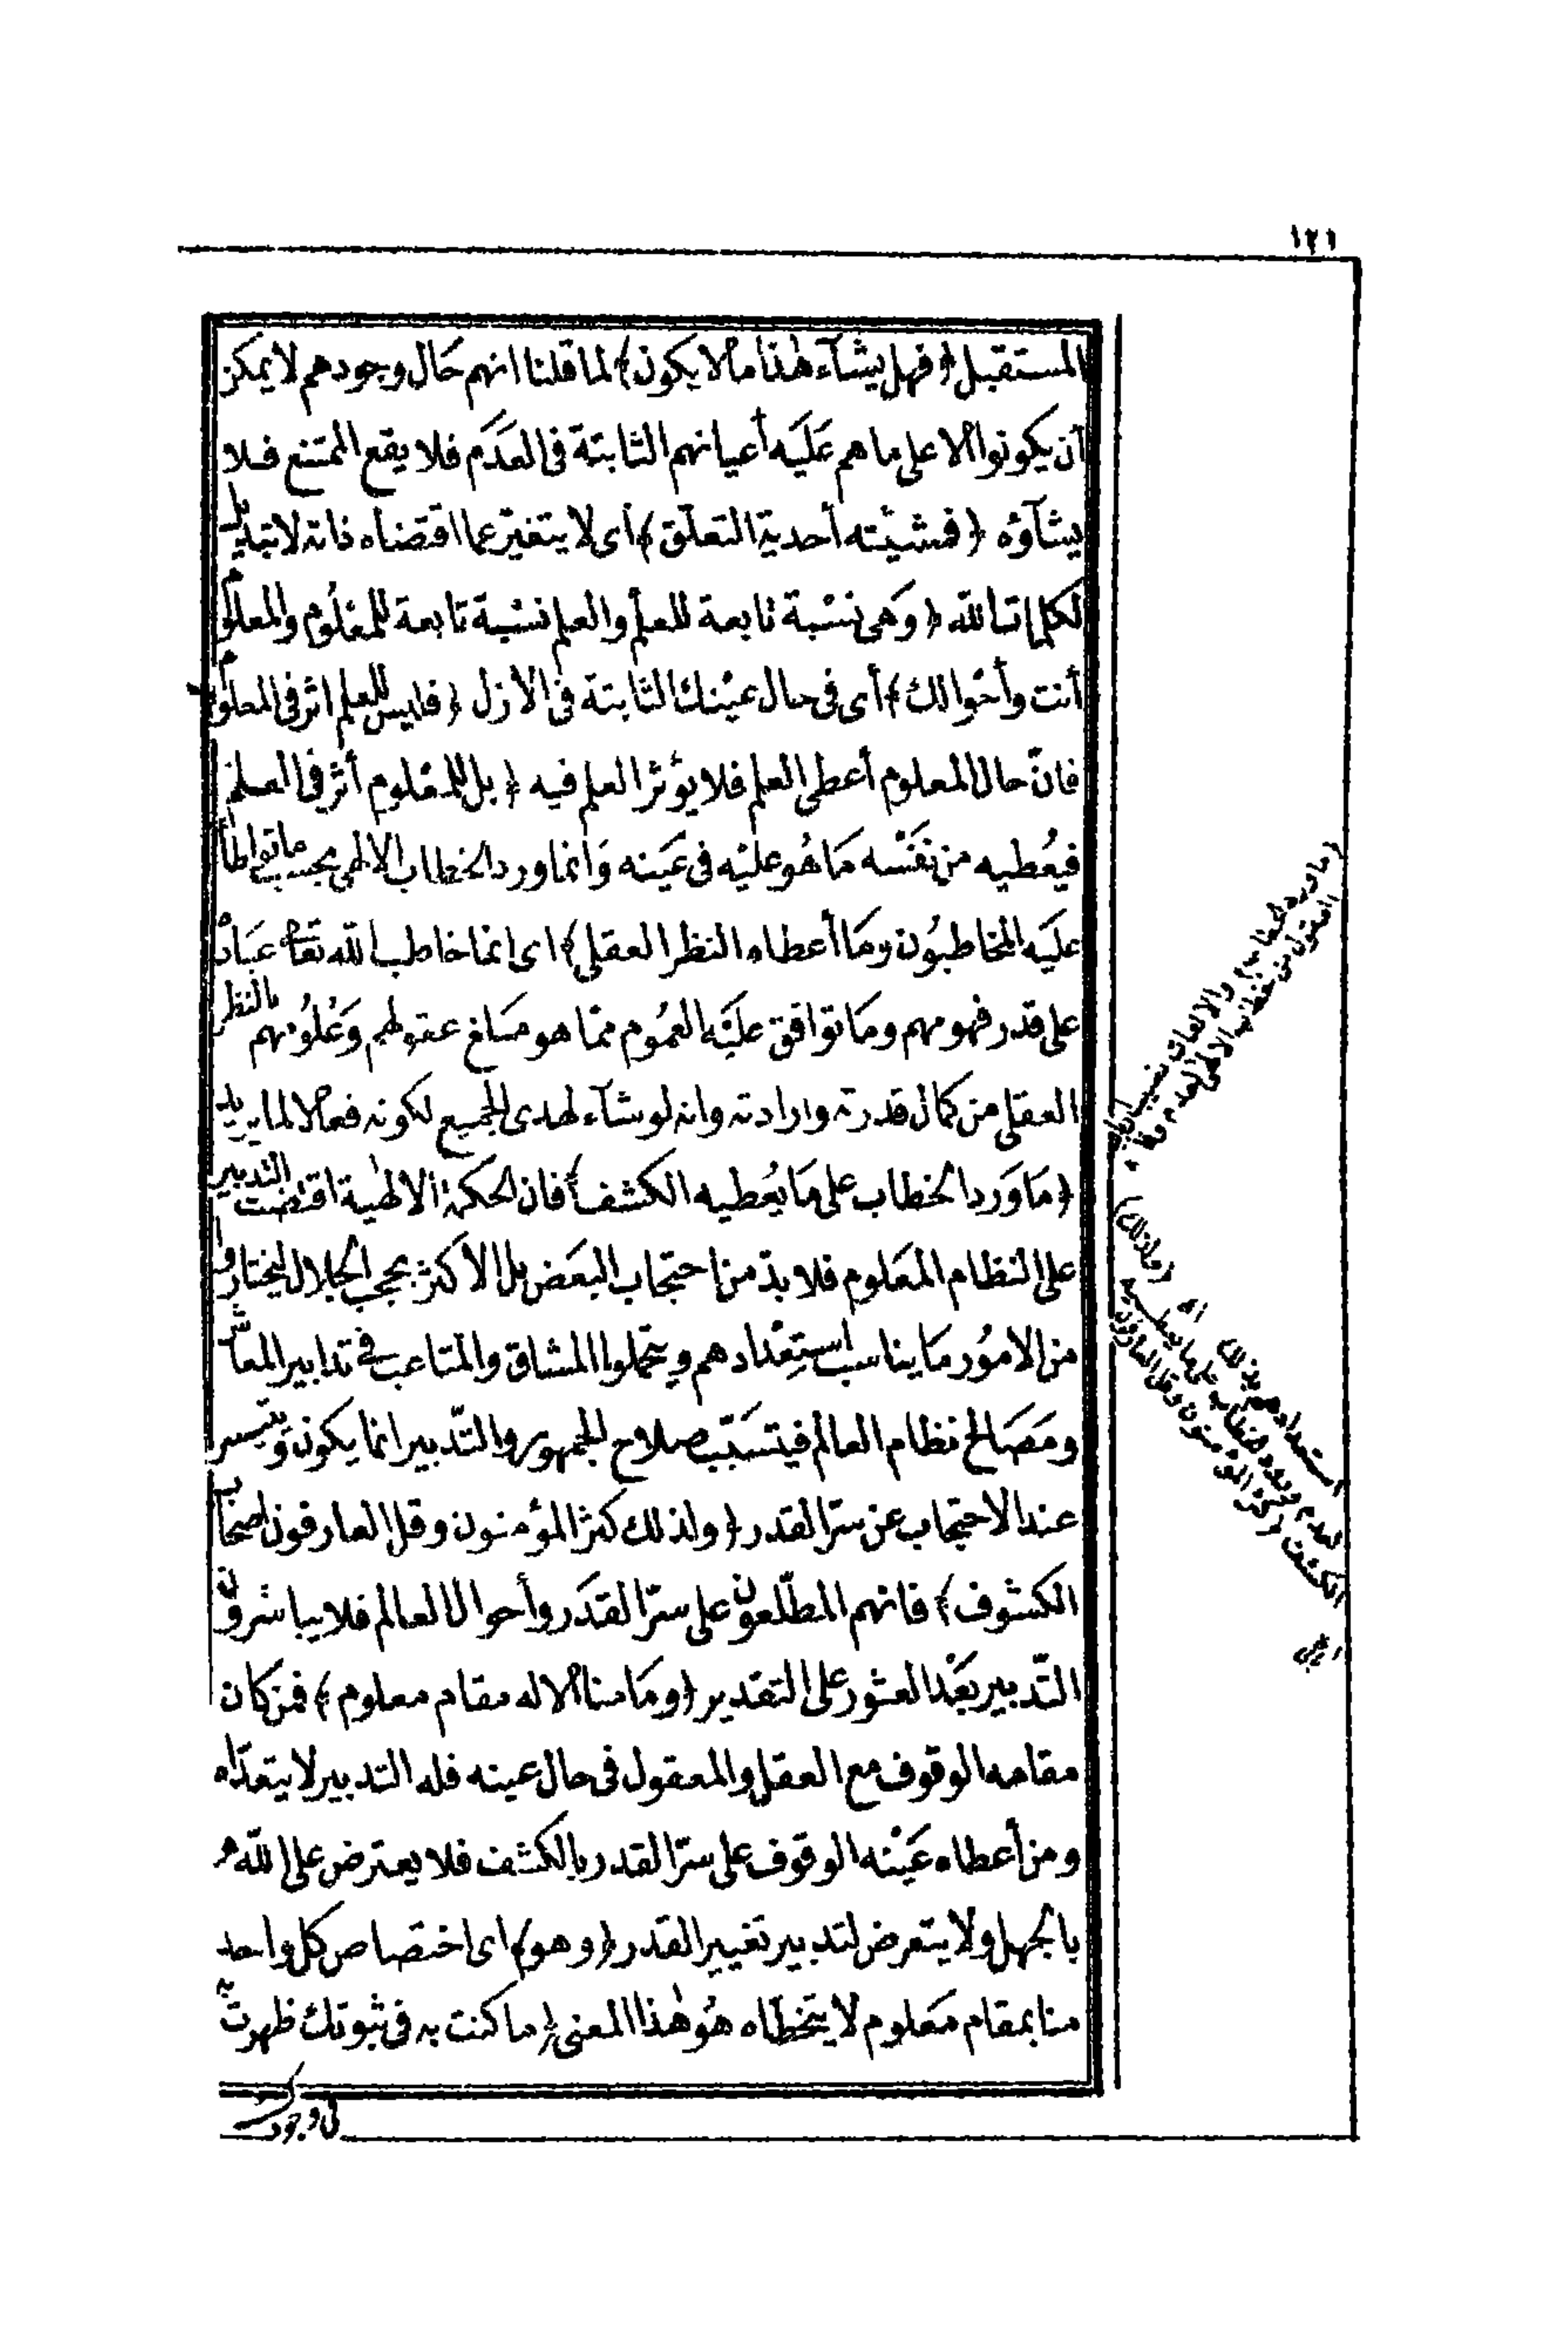 ١٢١
المستقبل ﴿فهل يشآء هٰذا ما لا يكون﴾ لما قلنا انهم حَال وجودهم لا يمكن
أن يكونوا الا على ما هم عَلَيه أعيانهم الثابتة فى العَدَم فلا يقع الممتنع فلا
يشآؤه ﴿فمشيْئته أحدية التعلّق﴾ أى لا يتغيرّ عما اقتضاه ذاته لا تبديل
لكلمات الله ﴿وَهى نسْبة تابعة للعلم والعلم نسْبة تابعة للمعْلُوم والمعلوم
أنت وأحْوالك﴾ أى فى حال عيْنك الثابتة فى الازل ﴿فليس للعلم اثر فى المعلوم
فانّ حال المعلوم أعطى العلم فلا يؤثر العلم فيه ﴿بل للمعْلوم أثر فى العلم
فيعُطيه من نفَسْه مَا هُو عليْه فى عَينه وَانما ورد الخطاب الالهى بحسب ما تواطأ
علَيَه المخاطبُون ومَا أعطاه النظر العقلى﴾ اى انما خاطب الله تعَا عبَاده
على قدر فهومهم ومَا توافق عليَْه العمُوم ممّا هو مبَلغ عقولهم وَعُلوُمهم بالنظر
العقلى من كمال قدرته وارادته وانه لو شآء لهدى الجميع لكونه فعالا لما يريد
﴿مَا وَرد الخطاب على مَا يعُطيه الكشف﴾ فان الحكمة الالهٰية اقتضت التدبير
على النظام المعَلوم فلا بدّ من احتجاب البعَض بل الاكثر بحجب الجلال ليختاروا
من الامُور مَا يناسب اسِتِعْدادهم ويتحملوا المشاق والمتاعب فى تدابير المعاش
ومَصَالح نظام العالم فيتسَبّب صلاح الجمهور والتّدبير انما يكون ويتيسر
عند الاحتجاب عن سرّ القدر ﴿ولذلك كثر المؤمنون وقل العارفون اصحاب
الكشوف﴾ فانهم المطّلعون على سرّ القدَر وأحوال العالم فلا يباشرون
التّدبير بعَْد العثور على التقدير ﴿ومَا منا الا له مقام معلوم﴾ فمن كان
مقامه الوقوف مع العقل والمعقول فى حال عينه فله التدبير لا يتعدّاه
ومن أعطاه عَيْنه الوقوف على سرّ القدر بالكشف فلا يعترض على الله
بالجهل ولا يتعرض لتدبير تغيير القدر ﴿وهو﴾ اى اختصاص كل واحد
منا بمقام مَعلوم لا يتخطّاه هُو هٰذا المعنى ﴿ما كنت به فى ثبوتك ظهرت به
فى وجودك